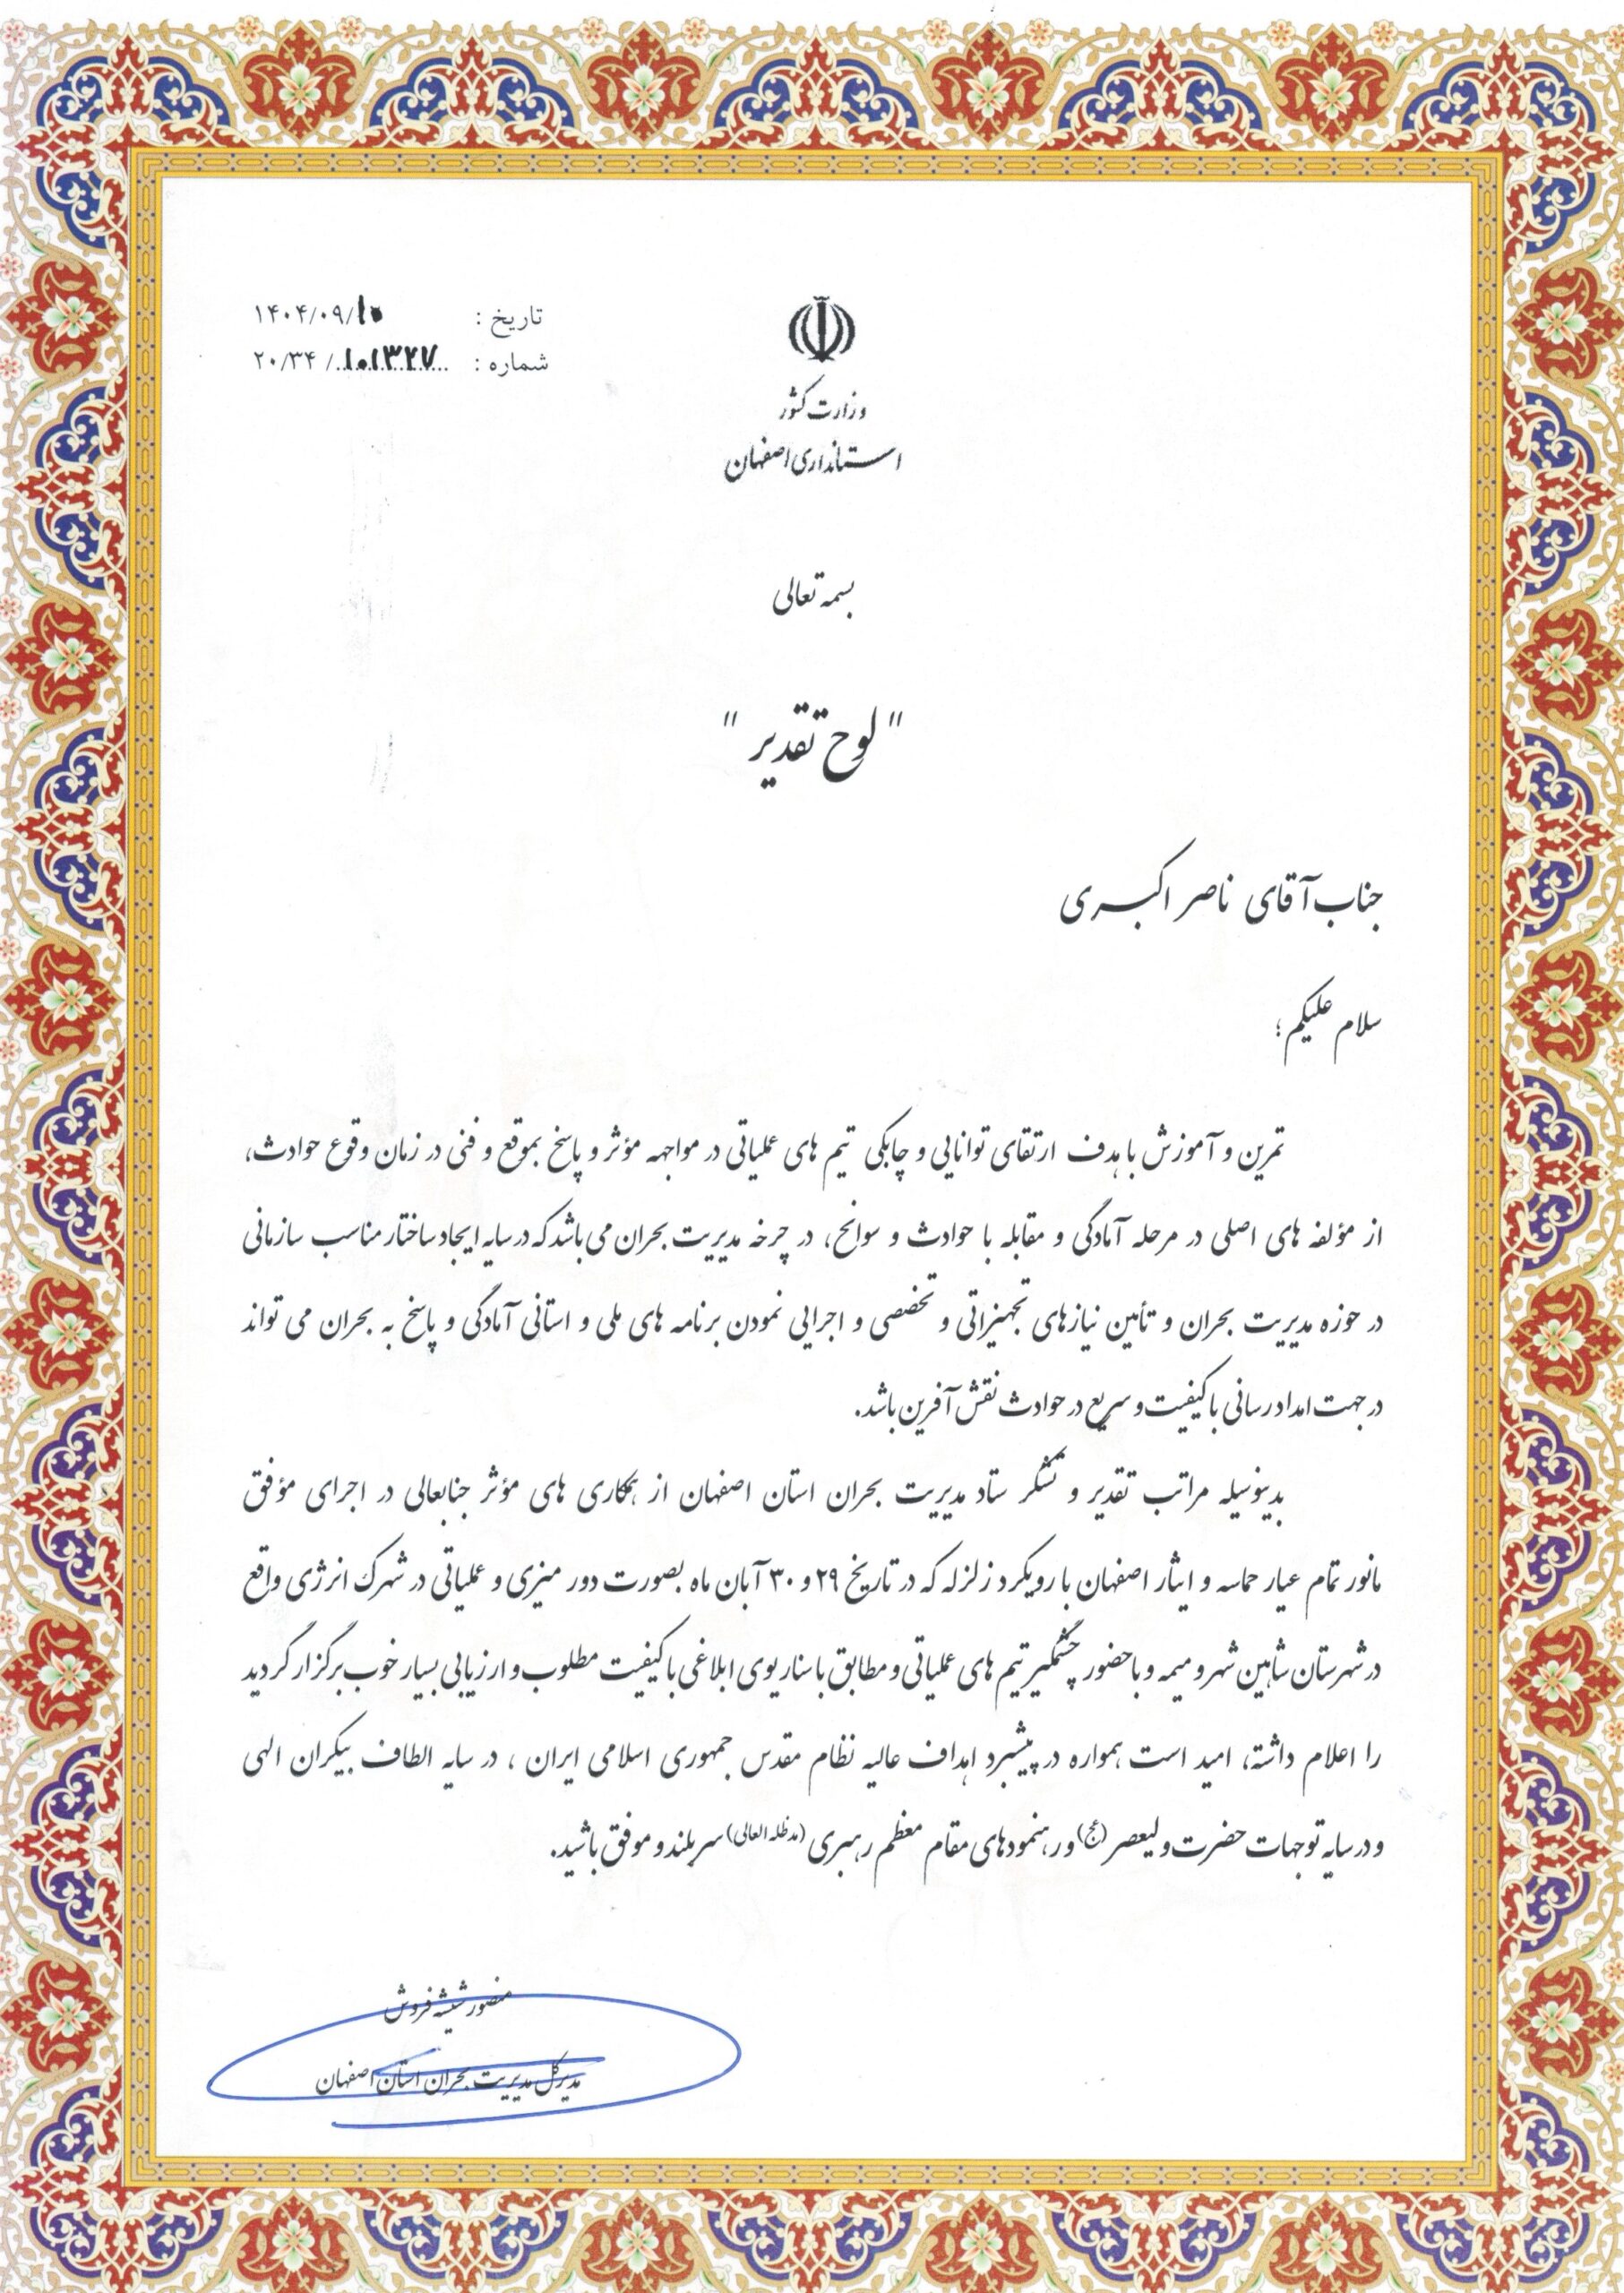 تاریخ : ۱۴۰۴/۰۹/۱۰
شماره : ۲۰/۳۴ /۱۰۱۳۲۷
وزارت کشور
استانداری اصفهان
بسمه تعالی
" لوح تقدیر "
جناب آقای ناصر اکبری
سلام علیکم ؛
تمرین و آموزش با هدف ارتقای توانایی و چابکی تیم های عملیاتی در مواجهه مؤثر و پاسخ بموقع و فنی در زمان وقوع حوادث،
از مؤلفه های اصلی در مرحله آمادگی و مقابله با حوادث و سوانح، در چرخه مدیریت بحران می باشد که در سایه ایجاد ساختار مناسب سازمانی
در حوزه مدیریت بحران و تأمین نیازهای تجهیزاتی و تخصصی و اجرایی نمودن برنامه های ملی و استانی آمادگی و پاسخ به بحران می تواند
در جهت امداد رسانی با کیفیت و سریع در حوادث نقش آفرین باشد.
بدینوسیله مراتب تقدیر و تشکر ستاد مدیریت بحران استان اصفهان از همکاری های مؤثر جنابعالی در اجرای مؤفق
مانور تمام عیار حماسه و ایثار اصفهان با رویکرد زلزله که در تاریخ ۲۹ و ۳۰ آبان ماه بصورت دور میزی و عملیاتی در شهرک انرژی واقع
در شهرستان شاهین شهر و میمه و با حضور چشمگیر تیم های عملیاتی و مطابق با سناریوی ابلاغی با کیفیت مطلوب و ارزیابی بسیار خوب برگزار گردید
را اعلام داشته، امید است همواره در پیشبرد اهداف عالیه نظام مقدس جمهوری اسلامی ایران ، در سایه الطاف بیکران الهی
و در سایه توجهات حضرت ولیعصر (عج) و رهنمودهای مقام معظم رهبری (مدظله العالی) سربلند و موفق باشید.
منصور شیشه فروش
مدیرکل مدیریت بحران استان اصفهان